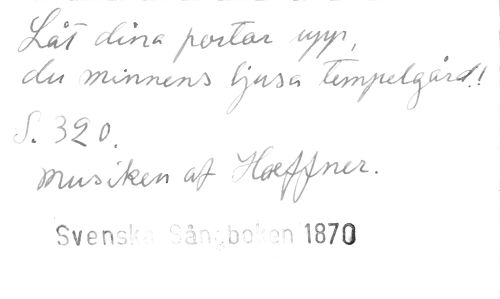 Låt dina portar upp,
du minnens ljusa tempelgård!
S. 320.
Musiken af Hæffner.
Svenska Sångboken 1870